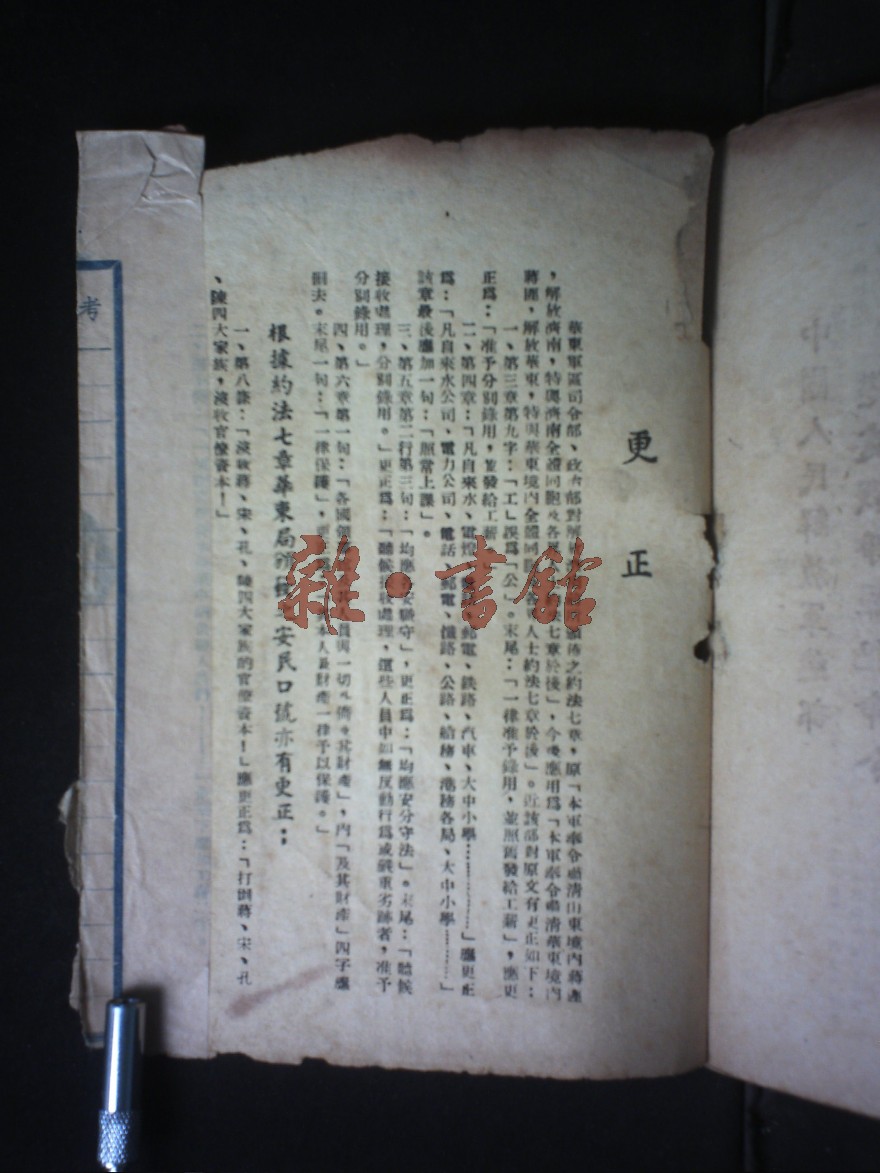 更正
華東軍區司令部、政治部對解放濟南所頒佈之約法七章,原「本軍奉令肅清山東境內蔣匪
,解放濟南,特與濟南全體同胞及各界人士約法七章於後」,今後應用為「本軍奉令肅清華東境內
蔣匪,解放華東,特與華東境內全體同胞及各界人士約法七章於後」。近該部對原文有更正如下:
一、第三章第九字:「工」誤為「公」。末尾:「一律准予錄用,並照舊發給工薪」,應更
正為:「准予分別錄用,並發給工薪
二、第四章:「凡自來水、電燈、電話、郵電、鐵路、汽車、大中小學………」應更正
為:「凡自來水公司、電力公司、電話、郵電、鐵路、公路、船棧、港務各局、大中小學………」
該章最後應加一句:「照常上課」。
三、第五章第二行第三句:「均應各安職守」,更正為:「均應安分守法」。末尾:「聽候
接收處理,分別錄用。」更正為:「聽候接收處理,這些人員中如無反動行為或嚴重劣跡者,准予
分別錄用。」
四、第六章第一句:「各國領 人員與一切外僑及其財產」,內「及其財產」四字應
刪去。末尾一句:「一律保護」, 本人員財產一律予以保護。」
根據約法七章華東局 安民口號亦有更正:
一、第八條:「沒收蔣、宋、孔、陳四大家族的官僚資本!」應更正為:「打倒蔣、宋、孔
、陳四大家族,沒收官僚資本!」
考
雜·書館